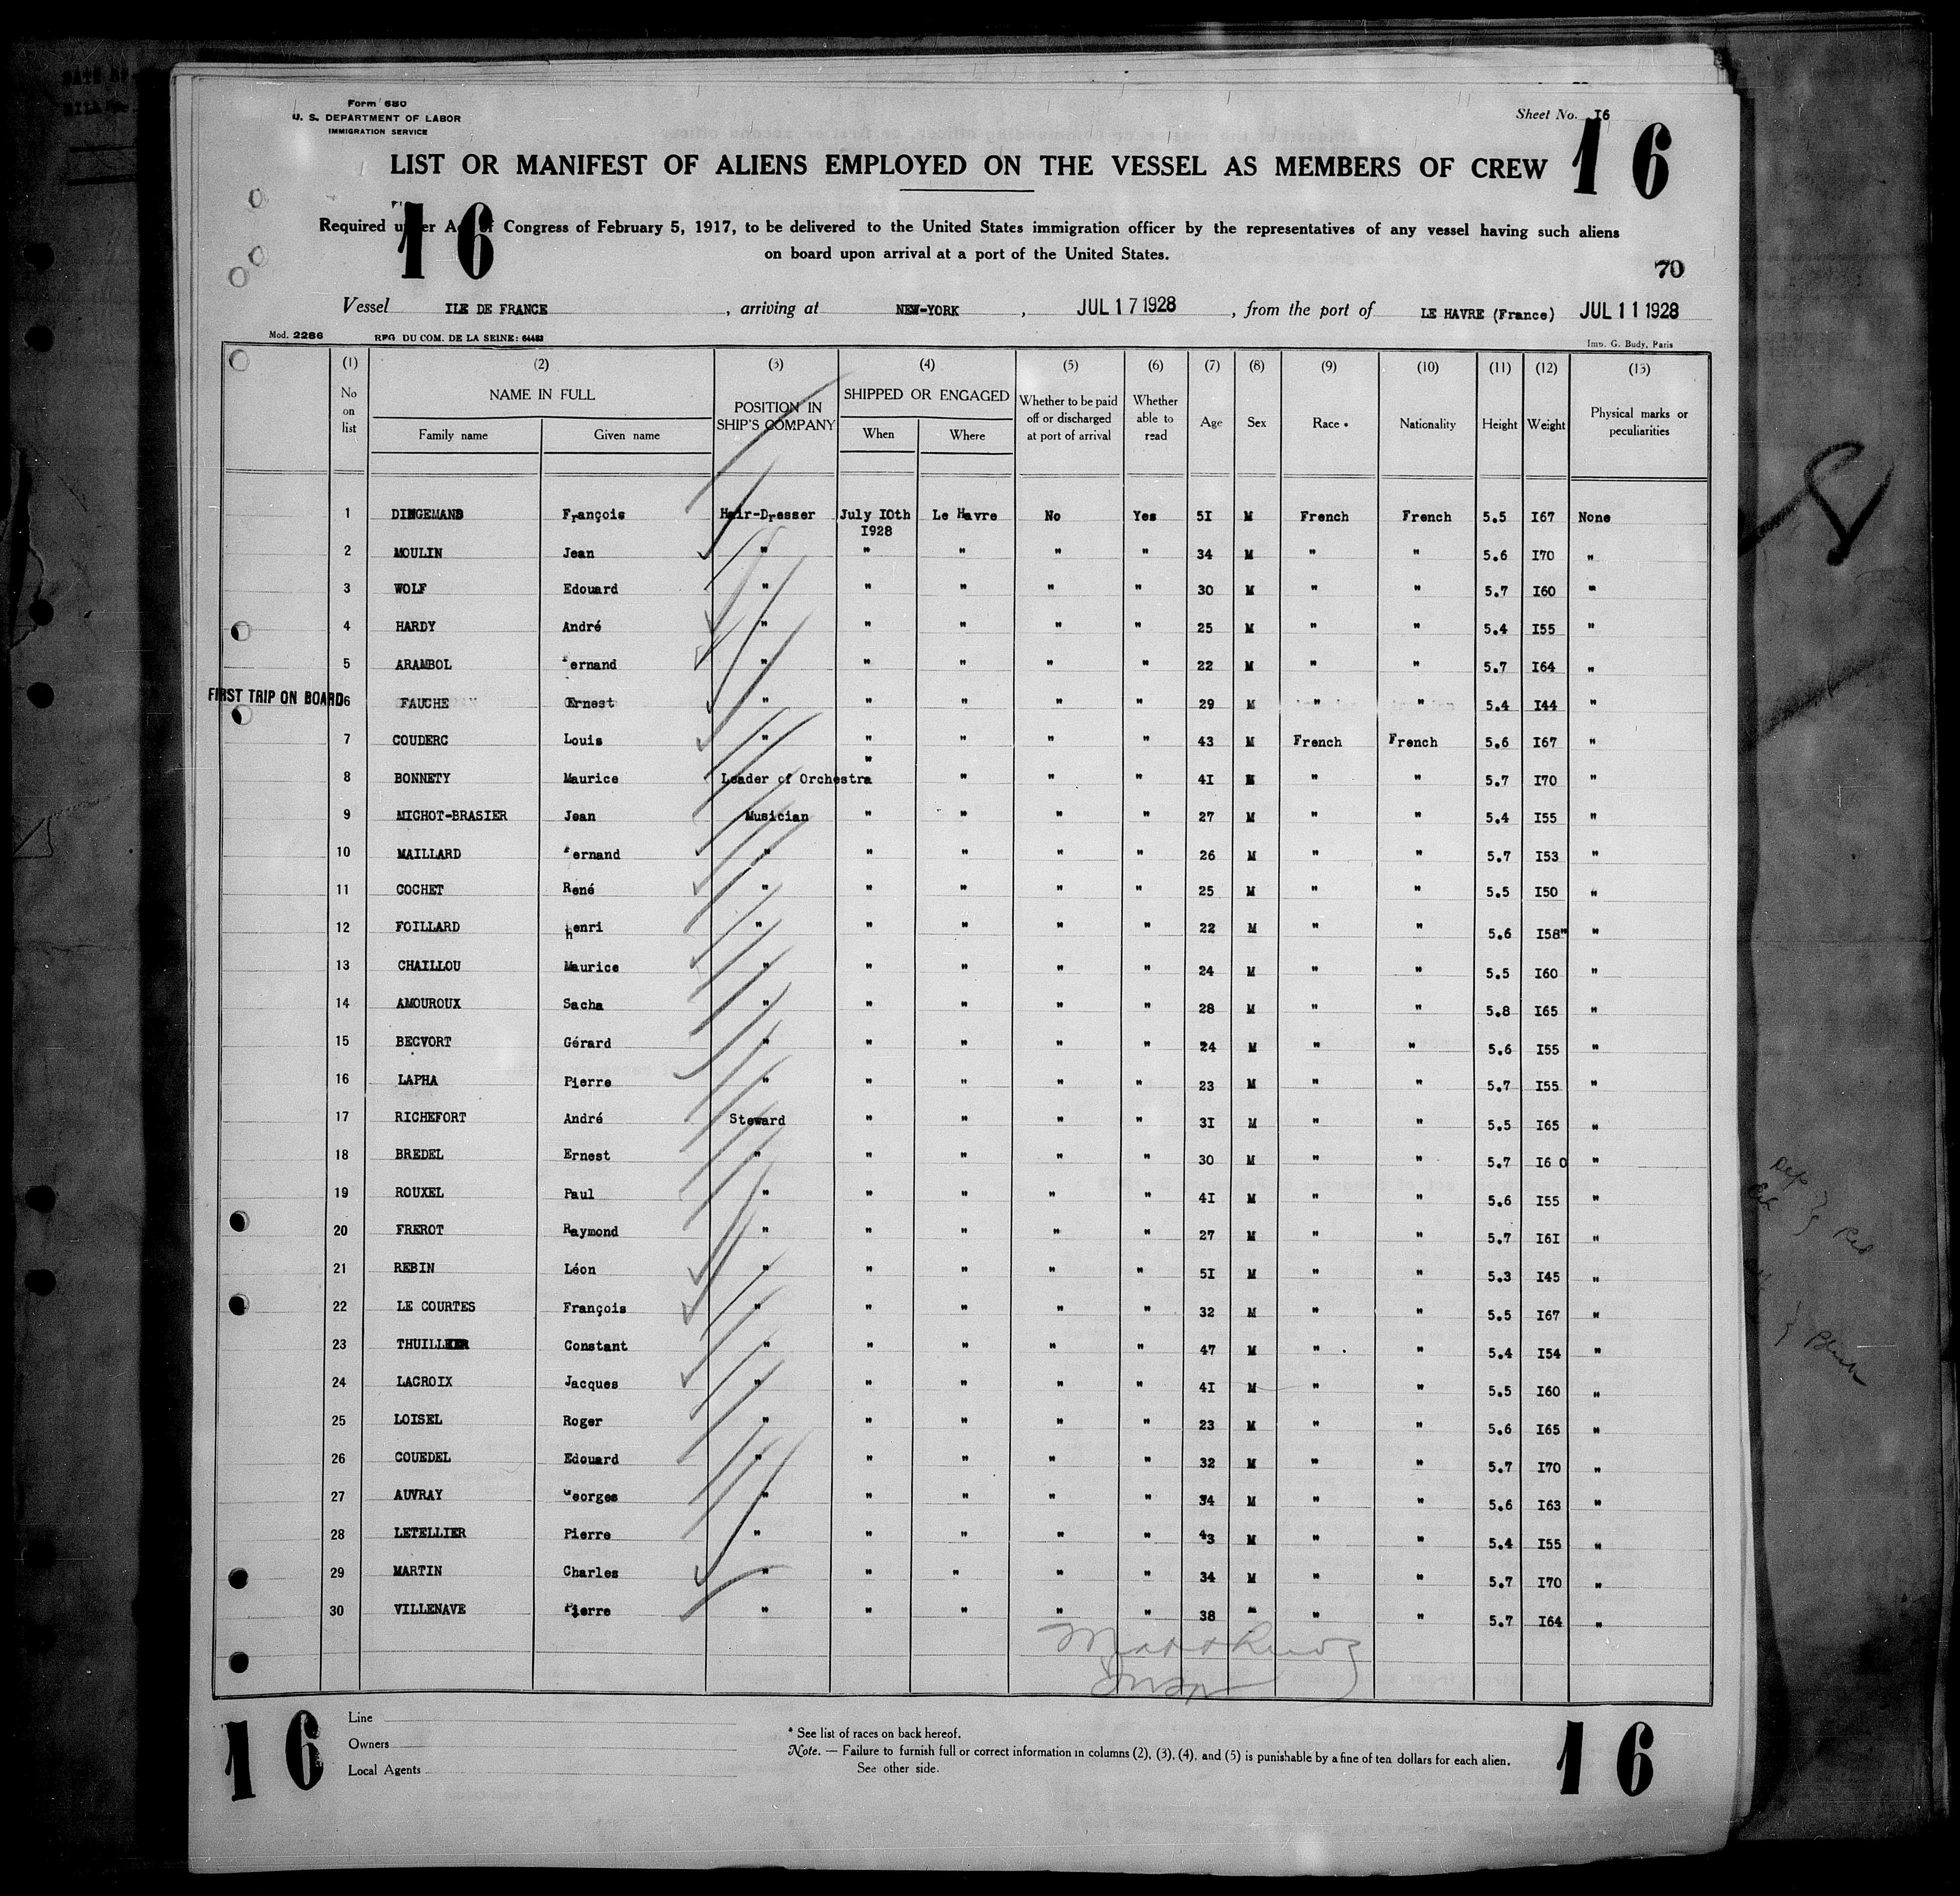 Form 680
U. S. DEPARTMENT OF LABOR
IMMIGRATION SERVICE
Sheet No. I6
16
LIST OR MANIFEST OF ALIENS EMPLOYED ON THE VESSEL AS MEMBERS OF CREW
16
Required under Act of Congress of February 5, 1917, to be delivered to the United States immigration officer by the representatives of any vessel having such aliens
on board upon arrival at a port of the United States.
70
Vessel ILE DE FRANCE , arriving at NEW-YORK , JUL 17 1928 , from the port of LE HAVRE (France) JUL 11 1928
Mod. 2286 REG DU COM. DE LA SEINE: 64483 Imp. G. Budy, Paris
(1) (2) (3) (4) (5) (6) (7) (8) (9) (10) (11) (12) (13)
No on list NAME IN FULL Family name Given name POSITION IN SHIP'S COMPANY SHIPPED OR ENGAGED When Where Whether to be paid off or discharged at port of arrival Whether able to read Age Sex Race * Nationality Height Weight Physical marks or peculiarities
1 DINGEMANS François Hair-Dresser July IOth I928 Le Havre No Yes 5I M French French 5.5 I67 None
2 MOULIN Jean " " " " " 34 M " " 5.6 I70 "
3 WOLF Edouard " " " " " 30 M " " 5.7 I60 "
4 HARDY André " " " " " 25 M " " 5.4 I55 "
5 ARAMBOL Fernand " " " " " 22 M " " 5.7 I64 "
FIRST TRIP ON BOARD 6 FAUCHE Ernest " " " " " 29 M " " 5.4 I44 "
7 COUDERC Louis " " " " " 43 M French French 5.6 I67 "
8 BONNETY Maurice Leader of Orchestra " " " " 4I M " " 5.7 I70 "
9 MICHOT-BRASIER Jean Musician " " " " 27 M " " 5.4 I55 "
10 MAILLARD Fernand " " " " " 26 M " " 5.7 I53 "
11 COCHET René " " " " " 25 M " " 5.5 I50 "
12 FOILLARD Henri " " " " " 22 M " " 5.6 I58" "
13 CHAILLOU Maurice " " " " " 24 M " " 5.5 I60 "
14 AMOUROUX Sacha " " " " " 28 M " " 5.8 I65 "
15 BECVORT Gérard " " " " " 24 M " " 5.6 I55 "
16 LAPHA Pierre " " " " " 23 M " " 5.7 I55 "
17 RICHEFORT André Steward " " " " 3I M " " 5.5 I65 "
18 BREDEL Ernest " " " " " 30 M " " 5.7 I6 0 "
19 ROUXEL Paul " " " " " 4I M " " 5.6 I55 "
20 FREROT Raymond " " " " " 27 M " " 5.7 I6I "
21 REBIN Léon " " " " " 5I M " " 5.3 I45 "
22 LE COURTES François " " " " " 32 M " " 5.5 I67 "
23 THUILLIER Constant " " " " " 47 M " " 5.4 I54 "
24 LACROIX Jacques " " " " " 4I M " " 5.5 I60 "
25 LOISEL Roger " " " " " 23 M " " 5.6 I65 "
26 COUEDEL Edouard " " " " " 32 M " " 5.7 I70 "
27 AUVRAY Georges " " " " " 34 M " " 5.6 I63 "
28 LETELLIER Pierre " " " " " 43 M " " 5.4 I55 "
29 MARTIN Charles " " " " " 34 M " " 5.7 I70 "
30 VILLENAVE Pierre " " " " " 38 " " " 5.7 I64 "
16
Line
Owners
Local Agents
* See list of races on back hereof.
Note. — Failure to furnish full or correct information in columns (2), (3), (4), and (5) is punishable by a fine of ten dollars for each alien.
See other side.
16